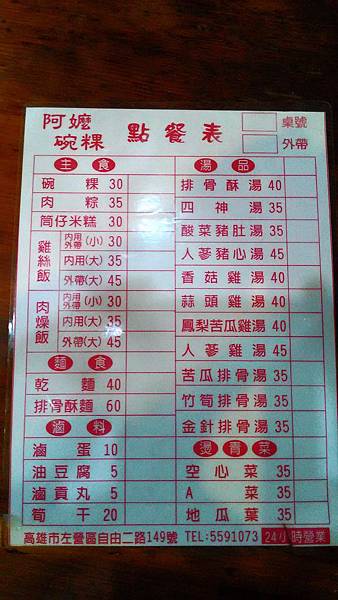 阿嬤
碗粿
點餐表
桌號
外帶
主食
碗粿 30
肉粽 35
筒仔米糕 30
雞絲飯
內用外帶(小) 30
內用(大) 35
外帶(大) 45
肉燥飯
內用外帶(小) 30
內用(大) 35
外帶(大) 45
麵食
乾麵 40
排骨酥麵 60
滷料
滷蛋 10
油豆腐 5
滷貢丸 5
筍干 20
湯品
排骨酥湯 40
四神湯 35
酸菜豬肚湯 35
人蔘豬心湯 45
香菇雞湯 40
蒜頭雞湯 40
鳳梨苦瓜雞湯 40
人蔘雞湯 45
苦瓜排骨湯 35
竹筍排骨湯 35
金針排骨湯 35
燙青菜
空心菜 35
A菜 35
地瓜葉 35
高雄市左營區自由二路149號 TEL:5591073 24小時營業